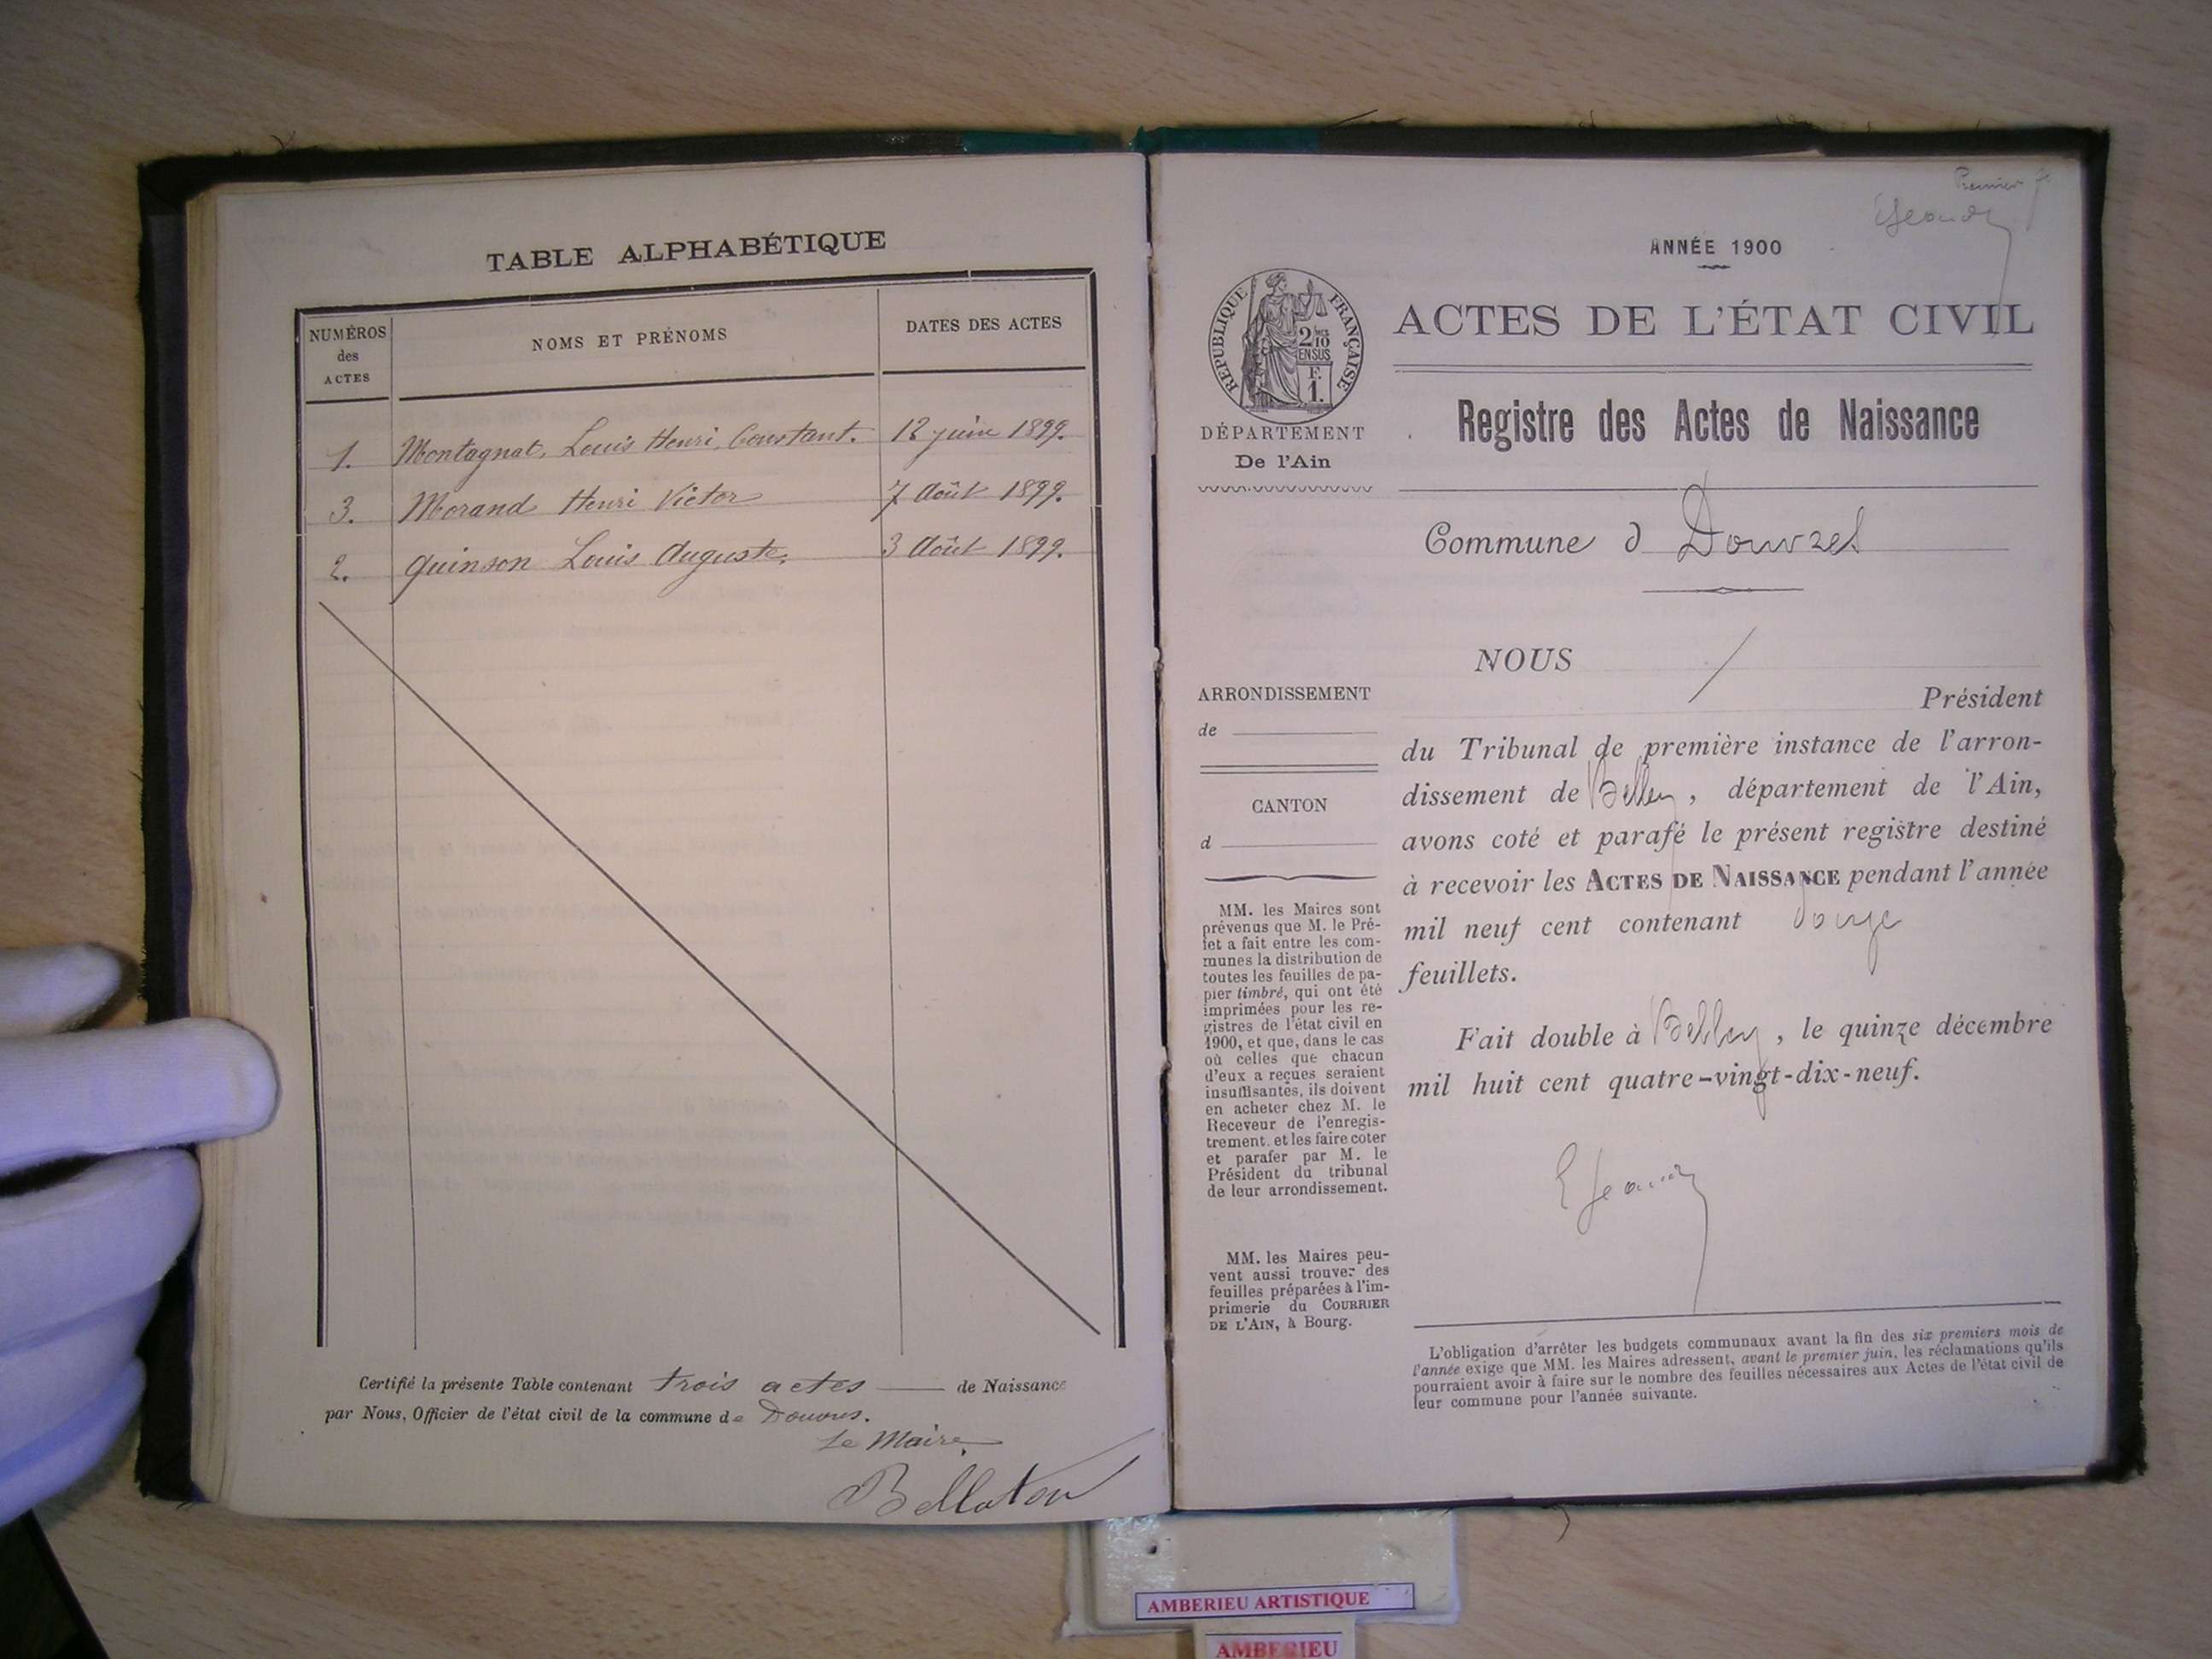 TABLE ALPHABÉTIQUE
NUMÉROS des ACTES
NOMS ET PRÉNOMS
DATES DES ACTES
1. Montagnat, Louis Henri, Constant. 12 juin 1899.
3. Morand Henri Victor 7 Août 1899.
2. Quinson Louis Auguste. 3 Août 1899.
Certifié la présente Table contenant trois actes de Naissance
par Nous, Officier de l'état civil de la commune de Douvres.
Le Maire,
Bellaton
Premier
ANNÉE 1900
RÉPUBLIQUE FRANÇAISE
2/10
EN SUS
F.
1.
ACTES DE L'ÉTAT CIVIL
DÉPARTEMENT
De l'Ain
Registre des Actes de Naissance
Commune d
NOUS
Président
du Tribunal de première instance de l'arron-
dissement de Belley, département de l'Ain,
avons coté et parafé le présent registre destiné
à recevoir les ACTES DE NAISSANCE pendant l'année
mil neuf cent contenant
feuillets.
Fait double à Belley, le quinze décembre
mil huit cent quatre-vingt-dix-neuf.
ARRONDISSEMENT
de
CANTON
d
MM. les Maires sont
prévenus que M. le Pré-
fet a fait entre les com-
munes la distribution de
toutes les feuilles de pa-
pier timbré, qui ont été
imprimées pour les re-
gistres de l'état civil en
1900, et que, dans le cas
où celles que chacun
d'eux a reçues seraient
insuffisantes, ils doivent
en acheter chez M. le
Receveur de l'enregis-
trement. et les faire coter
et parafer par M. le
Président du tribunal
de leur arrondissement.
MM. les Maires peu-
vent aussi trouver des
feuilles préparées à l'im-
primerie du COURRIER
DE L'AIN, à Bourg.
L'obligation d'arrêter les budgets communaux avant la fin des six premiers mois de
l'année exige que MM. les Maires adressent, avant le premier juin, les réclamations qu'ils
pourraient avoir à faire sur le nombre des feuilles nécessaires aux Actes de l'état civil de
leur commune pour l'année suivante.
AMBERIEU ARTISTIQUE
AMBERIEU